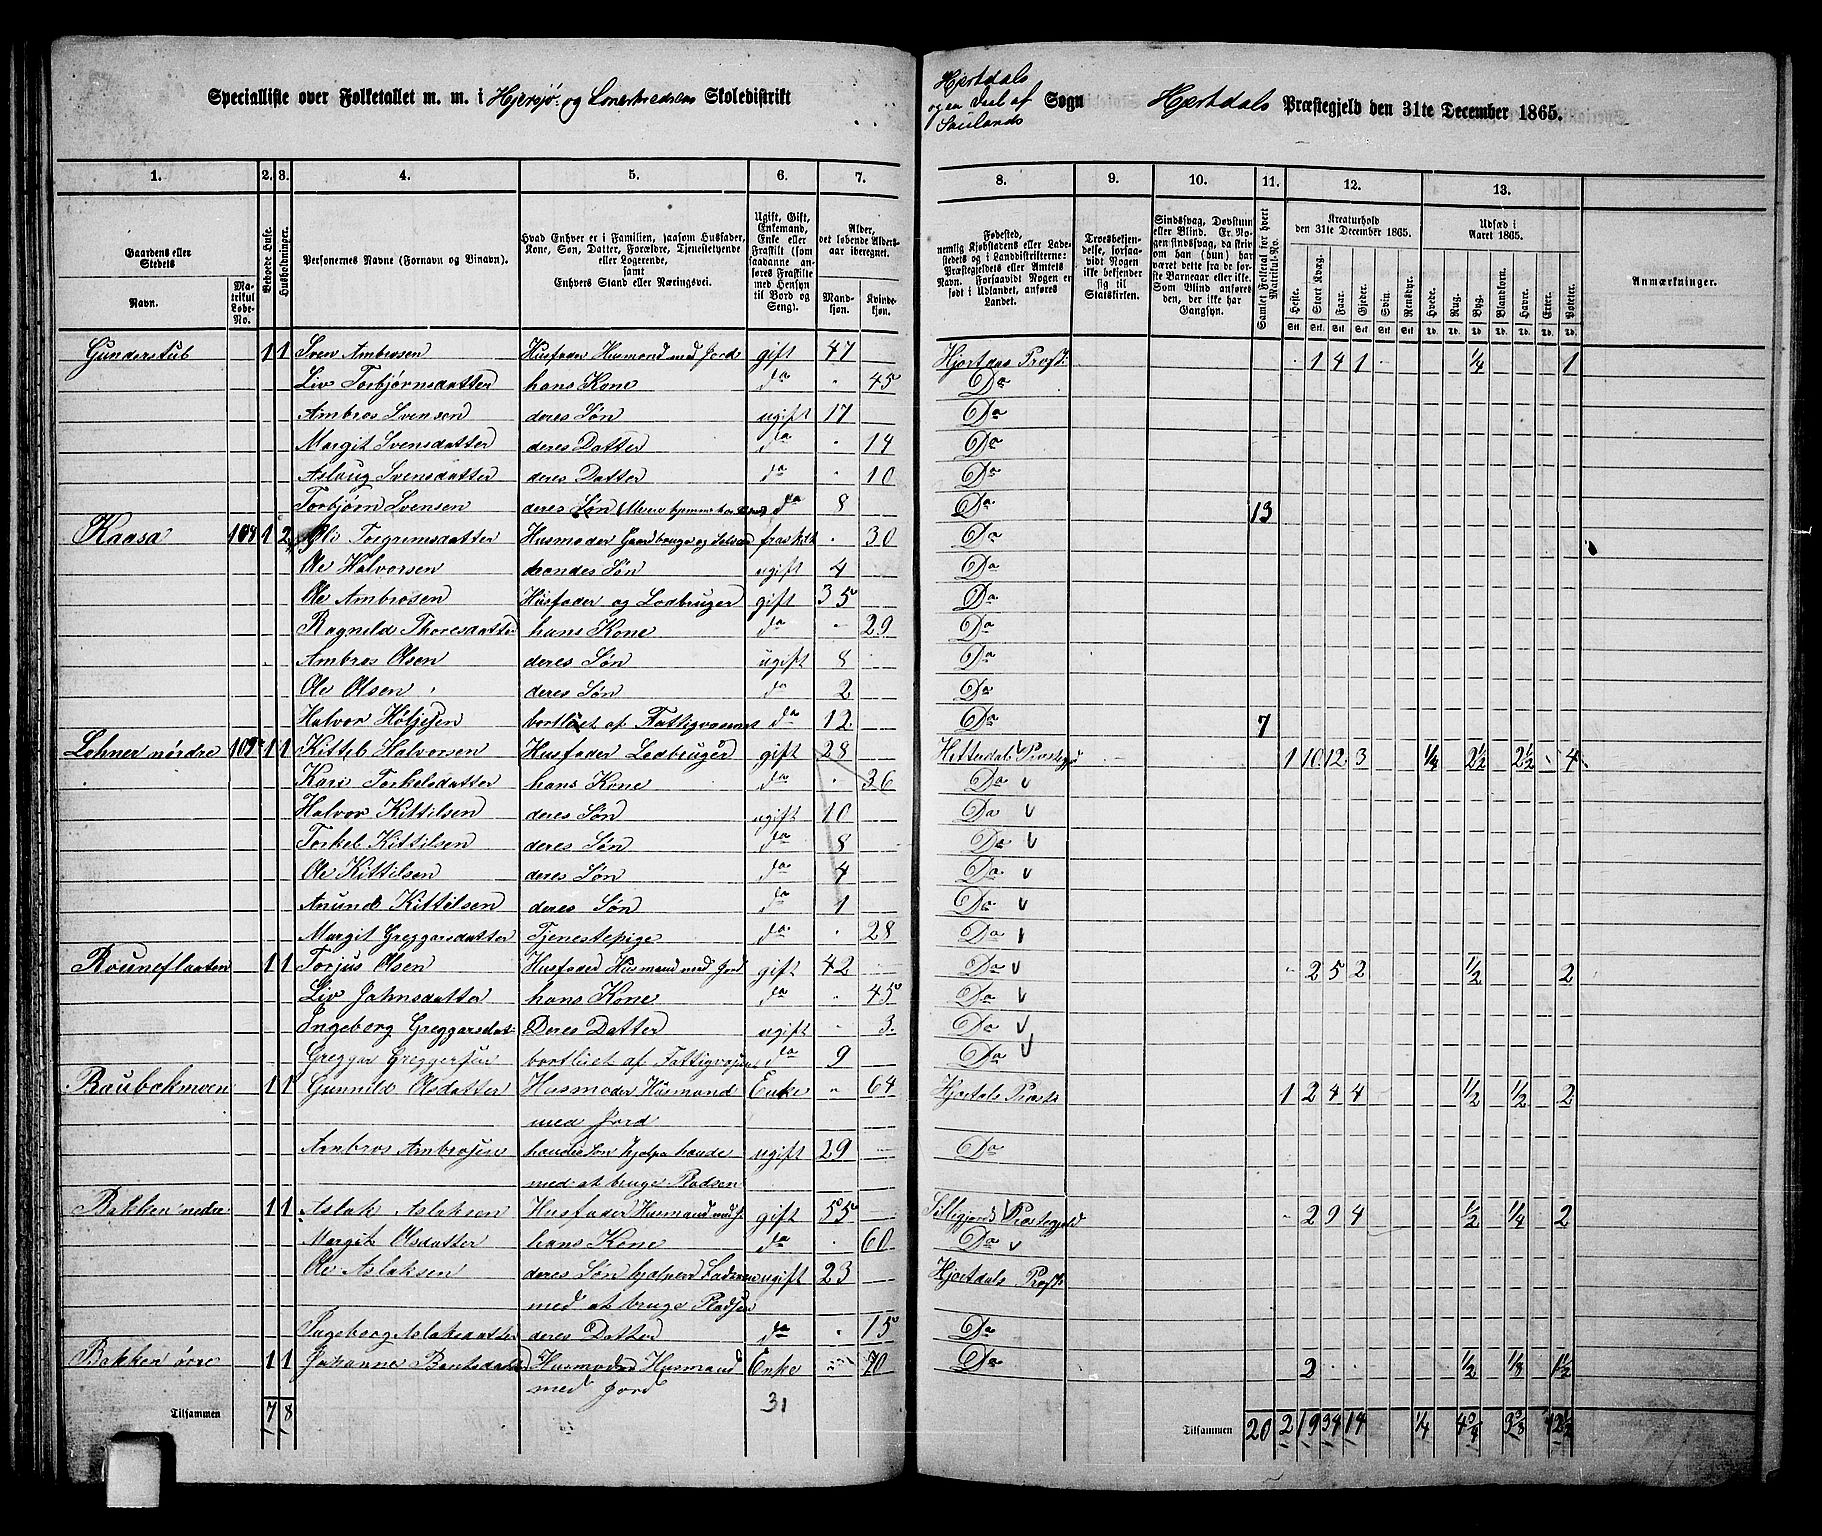 Specialliste over Folketallet m. m. i Hjersjø og Skoledistrikt
Hjertdals og en Deel af Saulands Sogn Hjertdals Præstegjeld den 31te December 1865.
1. 2. 3. 4. 5. 6. 7. 8. 9. 10. 11. 12. 13.
Gaardens eller Stedets Navn. Matrikul Løbe-No. Beboede Huse. Husholdninger. Personernes Navne (Fornavn og Binavn). Hvad Enhver er i Familien, saasom Husfader, Kone, Søn, Datter, Forældre, Tjenestetyende eller Logerende, samt Enhvers Stand eller Næringsvei. Ugift, Gift, Enkemand, Enke eller Fraskilt (saadanne anføres Fraskilte med Hensyn til Bord og Seng). Alder, det løbende Aldersaar iberegnet. Mandkjøn. Kvindekjøn.
Fødested, nemlig Kjøbstadens eller Ladestedets og i Landdistrikterne: Præstegjeldets eller Amtets Navn. Forsaavidt Nogen er født i Udlandet, anføres Landet. Troesbekjendelse, forsaavidt Nogen ikke bekjender sig til Statskirken. Sindssvag, Døvstum eller Blind. Er Nogen sindssvag, da skriv om han (hun) har været dette fra de første Barneaar eller ikke. Som Blind anføres den, der ikke har Gangsyn. Samlet Folketal for hvert Matrikul-No. Kreaturhold den 31te December 1865. Heste. Stort Kvæg. Faar. Gjeder. Svin. Rensdyr. Udsæd i Aaret 1865. Hvede. Rug. Byg. Blandkorn. Havre. Erter. Poteter. Anmærkninger.
Gunderstub 1 1 Sven Ambrosen Husfader Husmand med Jord gift 47 Hjertdals Præst. 1 4 1 1/4 1
Liv Torbjørnsdatter hans Kone do 45 Do
Ambros Svensen deres Søn ugift 17 Do
Margit Svensdatter deres Datter do 14 Do
Aslaug Svensdatter deres Datter do 10 Do
Torbjørn Svensen deres Søn do 8 Do 13
Kaasa 108 1 2 Torgrimsdatter Husmoder Gaardbruger og fraskilt 30 Do
Ole Halvorsen hendes Søn ugift 4 Do
Ole Ambrosen Husfader og Lodbruger gift 35 Do
Ragnild Thoresdatter hans Kone do 29 Do
Ambros Olsen deres Søn ugift 8 Do
Ole Olsen deres Søn do 2 Do
Halvor Høljesen bortliiet af Fattigvæsenet do 12 Do 7
Lohner nórdre 109 1 1 Kitteb Halvorsen Husfader Lodbruger gift 28 Hitterdals Præstegj 1 10 12 3 1/4 2 1/2 2 1/2 4
Kari Torkelsdatter hans Kone do 36 Do
Halvor Kittilsen deres Søn ugift 10 Do
Torkel Kittilsen deres Søn do 8 Do
Ole Kittilsen deres Søn do 4 Do
Anund Kittilsen deres Søn do 1 Do
Margit Greggarsdatter Tjenestepige do 28 Do
Rouneflaaten 1 1 Torjus Olsen Husfader Husmand med Jord gift 42 Do 2 5 2 1/2 2
Liv Johnsdatter hans Kone do 45 Do
Ingeborg Greggarsdat Deres Datter ugift 3 Do
Greggar Greggersen bortliiet af Fattigvæsen do 9 Do
Raubekmoen 1 1 Gunnild Olsdatter Husmoder Husmand Enke 64 Hjertdals Præst 1 2 4 4 1/2 1/2 2
med Jord
Ambros Ambrosen hendes Søn hjelpe hende ugift 29 Do
med at bruge Pladsen
Bakken nedre 1 1 Aslak Aslaksen Husfader Husmand med J. gift 55 Sillegjords Præstegjeld 2 9 4 1/2 1/4 2
Margit Olsdatter hans Kone do 60 Do
Ole Aslaksen deres Søn hjelper Faderen ugift 23 Hjertdals Præst.
med at bruge Pladsen
Ingeborg Aslaksdatter deres Datter do 15 Do
Bakken øvre 1 1 Johanne Bentsdatter Husmoder Husmand Enke 70 Do 2 1/2 1/8 1 1/2
med Jord
31
Tilsammen 7 8 Tilsammen 20 2 19 34 14 1/4 4 3/4 3 3/8 12 1/2